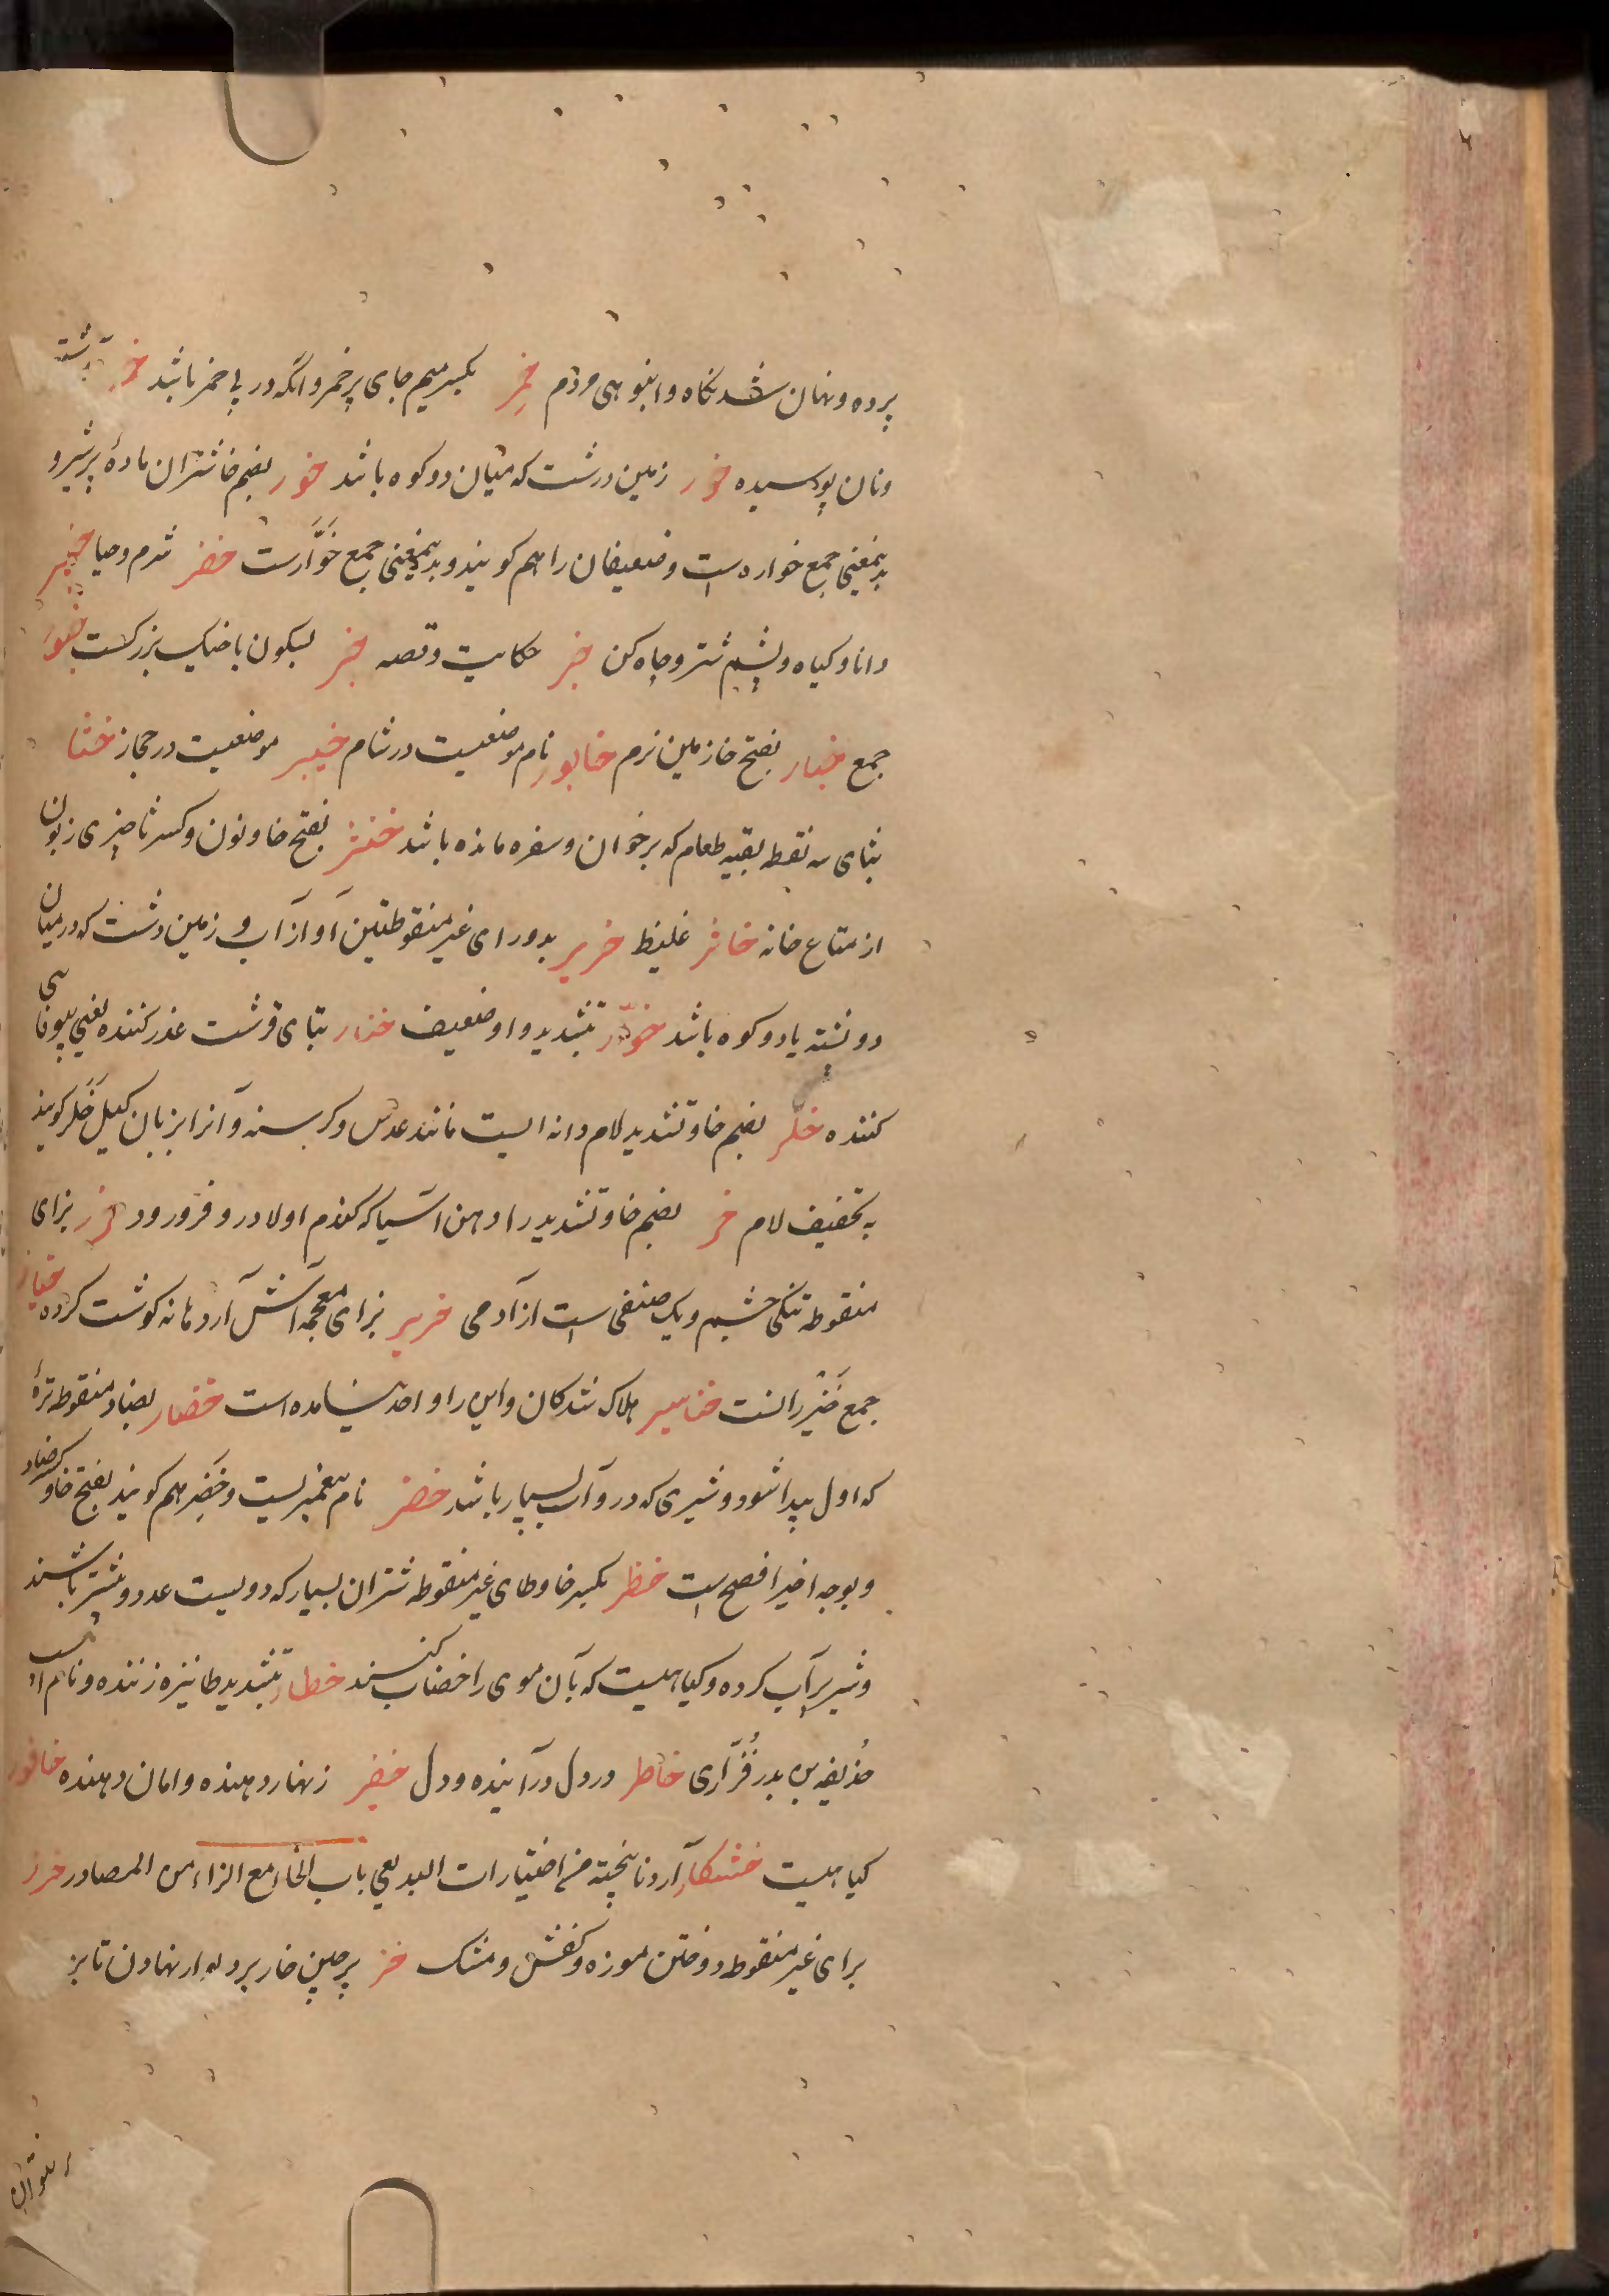 پرده و نهان شدنگاه و انبوهی مردم خمِر بکسر میم جای پر خمر و آنکه در پی خمر باشد
ونان پوسیده خور زمین درشت که میان دو کوه باشد خور بضم خا شتران مادهٔ پرشیر و
بدینمعنی جمع خواره است و ضعیفان را هم کویند و بدینمعنی جمع خَوَّارست خفر شرم و حیا خبیر
دانا و کیاه و پشم شتر و چاه کن خبر حکایت و قصه خبر بسکون با خیک بزرکست خبور
جمع خبار بفتح خا زمین نرم خابور نام موضعیست در شام خیبر موضعیست در حجاز خثا
بثای سه نقطه بقیه طعام که بر خوان و سفره مانده باشد خنثر بفتح خا و نون و کسر ثا چیزی زبون
از متاع خانه خاثر غلیظ خریر بدو رای غیر منقوطتین آواز آب و زمین درشت که در میان
دو پشته یا دو کوه باشد خوّار بتشدید واو ضعیف ختار بتای قرشت غدر کننده یعنی بیوفایی
کننده خلّر بضم خا و تشدید لام دانه ایست مانند عدس و کرسنه و آنرا بزبان کیل خَلَر کویند
به تخفیف لام خر بضم خا و تشدید را دهن آسیا که کندم اول در و فرو رود خزر بزای
منقوطه تنکی چشم و یک صنفی است از آدمی خزیر بزای معجمه آش آرد مانه کوشت کرده
جمع خَنْزراست خناسیر هلاک شدکان و این را واحد نیامده است خضار بضاد منقوطه ترهٔ
که اول پیدا شود و شیری که درو آب بسیار باشد خضر نام پیغمبریست و خَضِر هم کویند بفتح خا و کسر ضاد
و بوجه اخیر افصح است خطر بکسر خا و طای غیر منقوطه شتران بسیار که دویست عدد و بیشتر باشند
و شیر پر آب کرده و کیاهیست که بآن موی را خضاب کنند خطار بتشدید طا نیزه زننده و نام اسب
حذیفه بن بدر فُزّاری خاطر در دل درآینده و دل خفیر زنهار دهنده و امان دهنده خافور
کیاهیست خشکار آرد نا پخته من اختیارات البدیعی باب الخاء مع الزاء من المصادر خرز
برای غیر منقوطه دوختن موزه و کفش و مشک خز پرچین خار بر دیوار نهادن تا بر